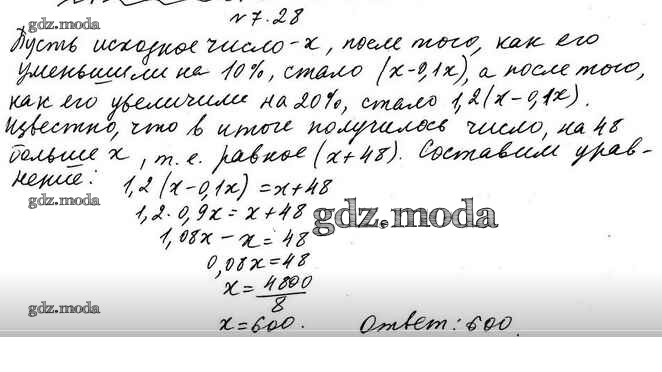 №7.28
gdz.moda
Пусть исходное число - x, после того, как его
уменьшили на 10%, стало (x-0,1x), а после того,
gdz.moda
как его увеличили на 20%, стало 1,2(x-0,1x).
Известно, что в итоге получилось число, на 48
больше x, т.е. равное (x+48). Составим урав-
нение:
1,2(x-0,1x)=x+48
gdz.moda
1,2·0,9x=x+48
gdz.moda
1,08x-x=48
0,08x=48
x=4800/8
gdz.moda
x=600. Ответ: 600.